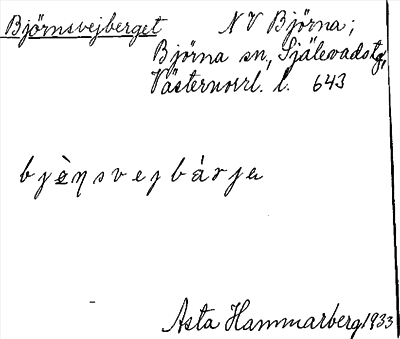 Björnsvejberget NV Björna;
Björna sn, Själevads tg,
Västernorrl. l. 643
bjὲŋsvejbárja
Asta Hammarberg 1933